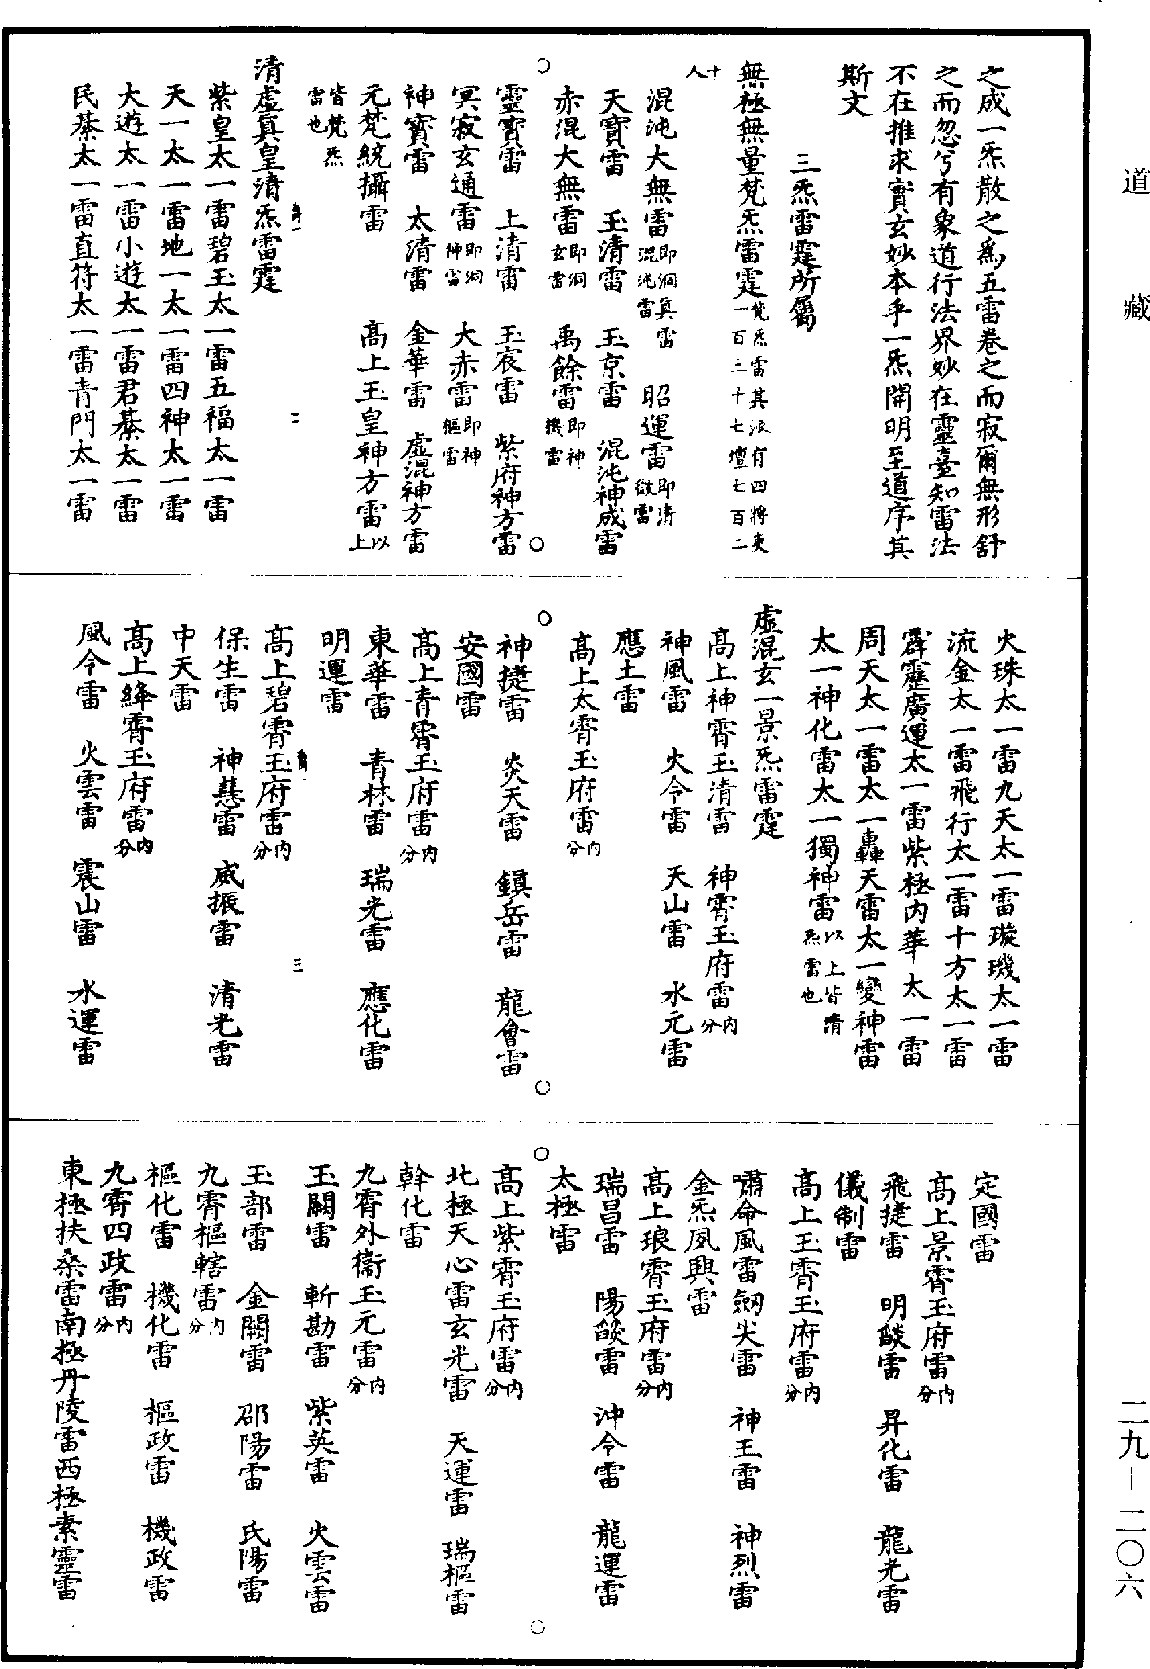 道藏
二九—二〇六
之成一炁散之為五雷卷之而寂爾無形舒
之而忽兮有象道行法界妙在靈臺知雷法
不在推求實玄妙本乎一炁開明至道序其
斯文
三炁雷霆所屬
無極無量梵炁雷霆梵炁雷其派有四將吏一百二十七壇七百二
十人
混沌大無雷即洞真雷混沌雷 昭運雷即清微雷
天寶雷 玉清雷 玉京雷 混沌神成雷
赤混大無雷即洞玄雷 禹餘雷即神機雷
靈寶雷 上清雷 玉宸雷 紫府神方雷
冥寂玄通雷即洞神雷 大赤雷即神樞雷
神寶雷 太清雷 金華雷 虛混神方雷
元梵統攝雷 高上玉皇神方雷以上
皆梵炁雷也
清虛真皇清炁雷霆
紫皇太一雷碧玉太一雷五福太一雷
天一太一雷地一太一雷四神太一雷
大遊太一雷小遊太一雷君綦太一雷
民綦太一雷直符太一雷青門太一雷
火珠太一雷九天太一雷璇璣太一雷
流金太一雷飛行太一雷十方太一雷
霹靂廣運太一雷紫極內華太一雷
周天太一雷太一轟天雷太一變神雷
太一神化雷太一獨神雷以上皆清炁雷也
虛混玄一景炁雷霆
高上神霄玉清雷 神霄玉府雷內分
神風雷 火令雷 天山雷 水元雷
應土雷
高上太霄玉府雷內分
神捷雷 炎天雷 鎮岳雷 龍會雷
安國雷
高上青霄玉府雷內分
東華雷 青林雷 瑞光雷 應化雷
明運雷
高上碧霄玉府雷內分
保生雷 神慧雷 威振雷 清光雷
中天雷
高上絳霄玉府雷內分
風令雷 火雲雷 震山雷 水運雷
定國雷
高上景霄玉府雷內分
飛捷雷 明燄雷 昇化雷 龍光雷
儀制雷
高上玉霄玉府雷內分
嘯命風雷劒尖雷 神王雷 神烈雷
金炁夙興雷
高上琅霄玉府雷內分
瑞昌雷 陽燄雷 沖令雷 龍運雷
太極雷
高上紫霄玉府雷內分
北極天心雷玄光雷 天運雷 瑞樞雷
幹化雷
九霄外衞玉元雷內分
玉闕雷 斬勘雷 紫英雷 火雲雷
玉部雷 金闕雷 邵陽雷 氏陽雷
九霄樞轄雷內分
樞化雷 機化雷 樞政雷 機政雷
九霄四政雷內分
東極扶桑雷南極丹陵雷西極素靈雷